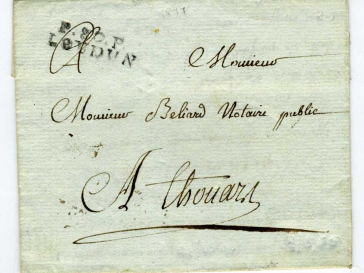 P.82.P
LOUDUN
A Monsieur
Monsieur Beliard Notaire public
A Thouars